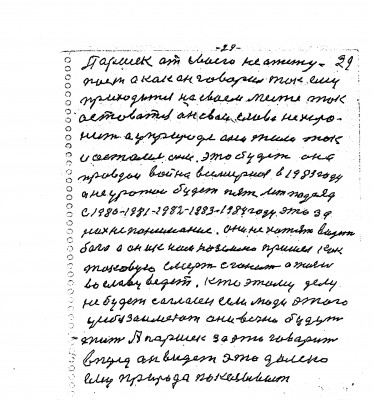 -29-
39
Паршек от своего не отступ-
пает а как он говорил так ему
приходится на своем месте так
оставатся он свои слова не хоро-
нит а у природе они жили так
и остался они. Это будет она
правдой война всемирная в 1981 году
а неурожай будет пят лет подряд
с 1980-1981-1982-1983-1984 году. это за
них не понимание. они не хотят видет
бога а он и к нам на землю пришел как
таковую смерт сгонит а жизн
во славу введет. Кто этому делу
не будет согласен если люди этого
ани вечно будут
жит А паршек за это говорит
вперед он видет это далеко
ему природа показывает